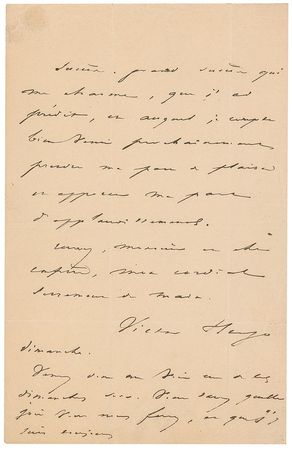 Succès. grand succès qui
me charme, que j'ai
prédit, et auquel je compte
bien venir prochainement
prendre ma part de plaisir
et apporter ma part
d'applaudissements.
Recevez, monsieur et cher
confrère, mon cordial
serrement de main.
Victor Hugo
dimanche.
Venez donc un
dimanches soir. Vous